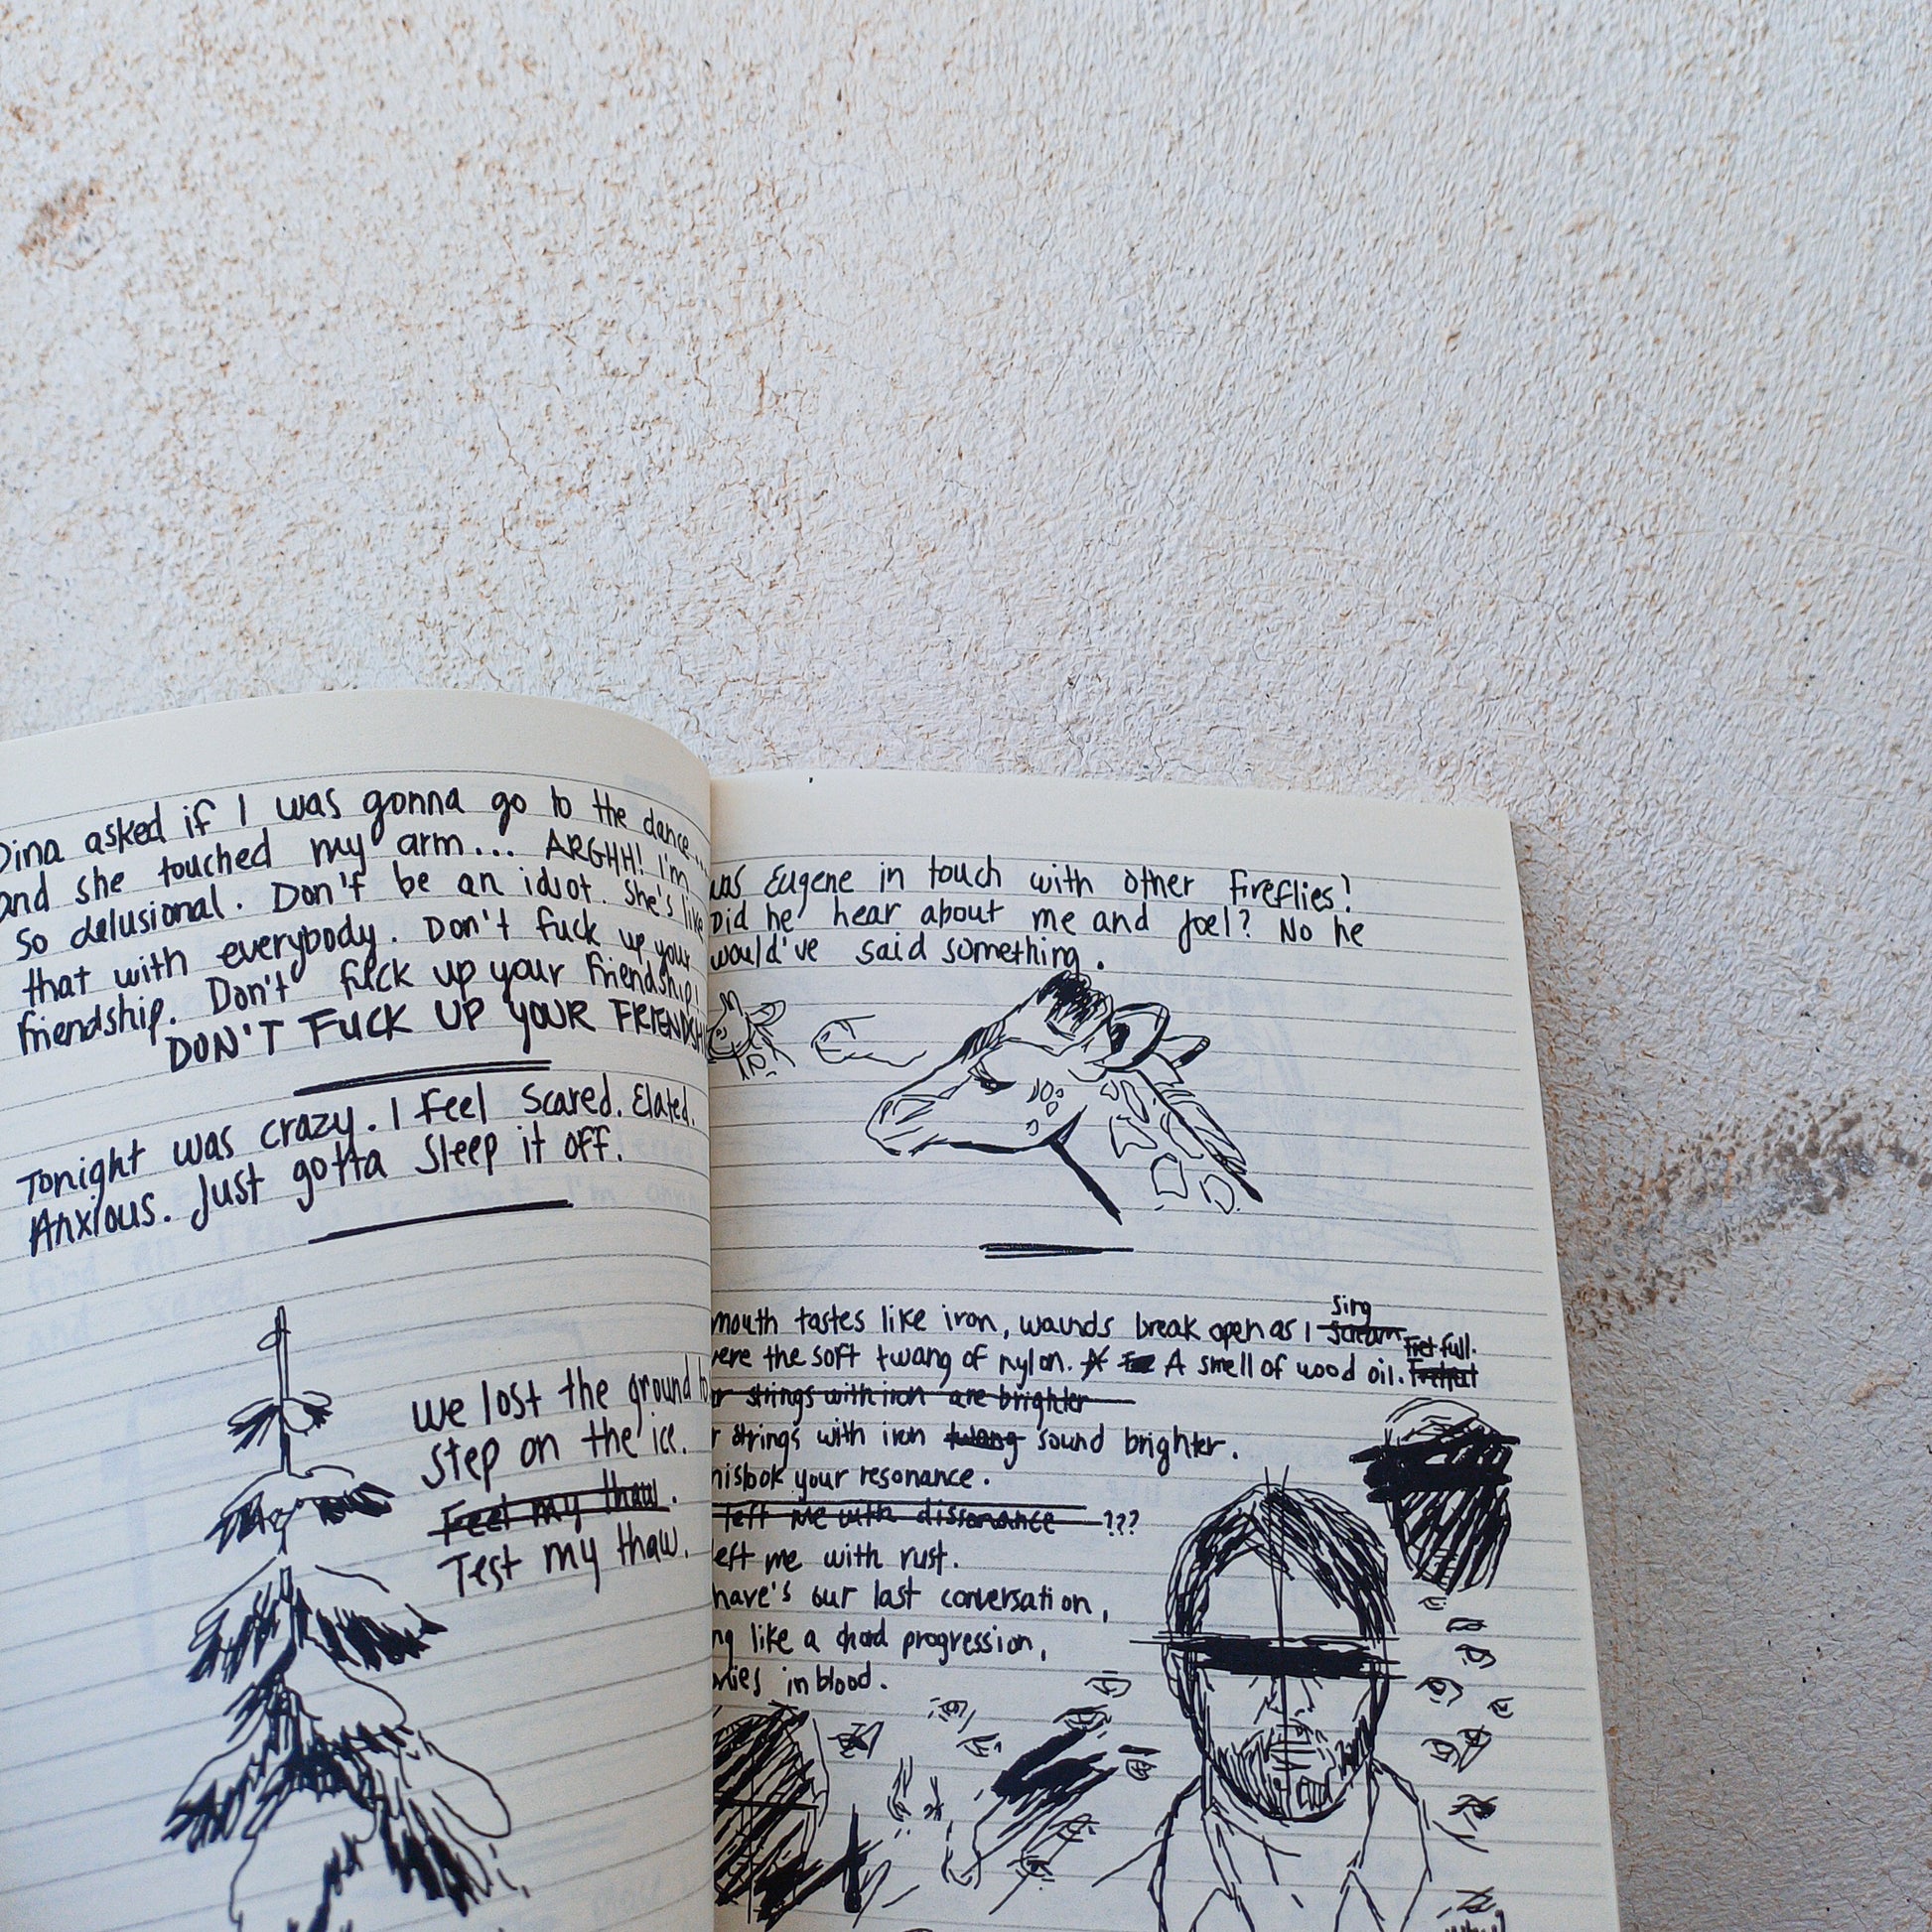 Dina asked if I was gonna go to the dance...
and she touched my arm... ARGHH! I'm
so delusional. Don't be an idiot. She's like
that with everybody. Don't fuck up your
friendship. Don't fuck up your friendship!
DON'T FUCK UP YOUR FRIENDSHI
Tonight was crazy. I feel scared. Elated.
Anxious. Just gotta sleep it off.
We lost the ground
step on the ice.
Feel my thaw.
Test my thaw.
was Eugene in touch with other fireflies?
Did he hear about me and Joel? No he
would've said something.
mouth tastes like iron, wounds break open as I scream sing
were the soft twang of nylon. A A smell of wood oil. Fretfull.
r strings with iron are brighter
r strings with iron twang sound brighter.
mistook your resonance.
left me with dissonance ???
left me with rust.
have's our last conversation,
ng like a chord progression,
in blood.